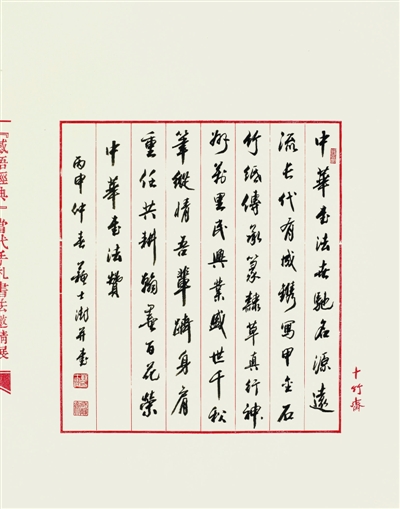 十竹齋
中華書法世馳名源遠
流長代有成鐫寫甲金石
竹紙傳承篆隸草真行神
州萬里民興業盛世千秋
筆縱情吾輩躋身肩
重任共耕翰墨百花榮
中華書法贊
丙申仲春蘇士澍并書
『感悟經典』當代手札書法邀請展